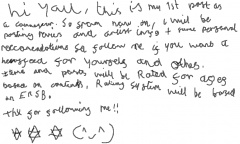 hi yall, this is my 1st post as
a So from now on, i will be
posting and artist + some personal
so follow me if you want a
for yourselfs and others.
and posts will be Rated for ages
based on contents, Rating System will be based
on ERSB.
thx for following me!!
(^‿^)